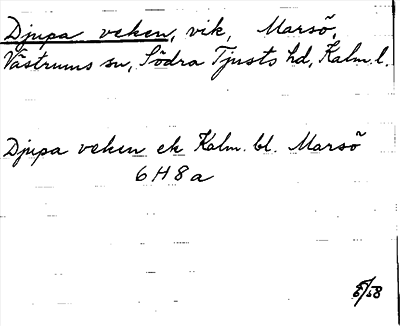 Djupa veken, vik, Marsö,
Västrums sn, Södra Tjusts hd, Kalm. l.
Djupa veken ek Kalm. bl. Marsö
6 H 8 a